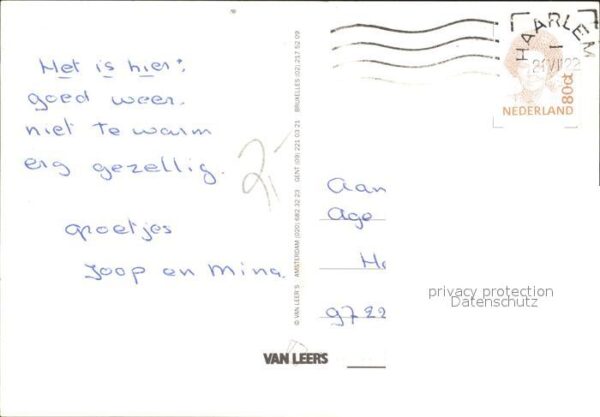 Het is hier:
goed weer.
niet te warm
erg gezellig.
groetjes
Joop en Mina.
2,-
© VAN LEER'S AMSTERDAM (020) 682 32 23 GENT (09) 221 03 21 BRUXELLES (02) 217 52 09
VAN LEERS
HAARLEM
NEDERLAND 80ct
Aan
Age
9722
privacy protection
Datenschutz